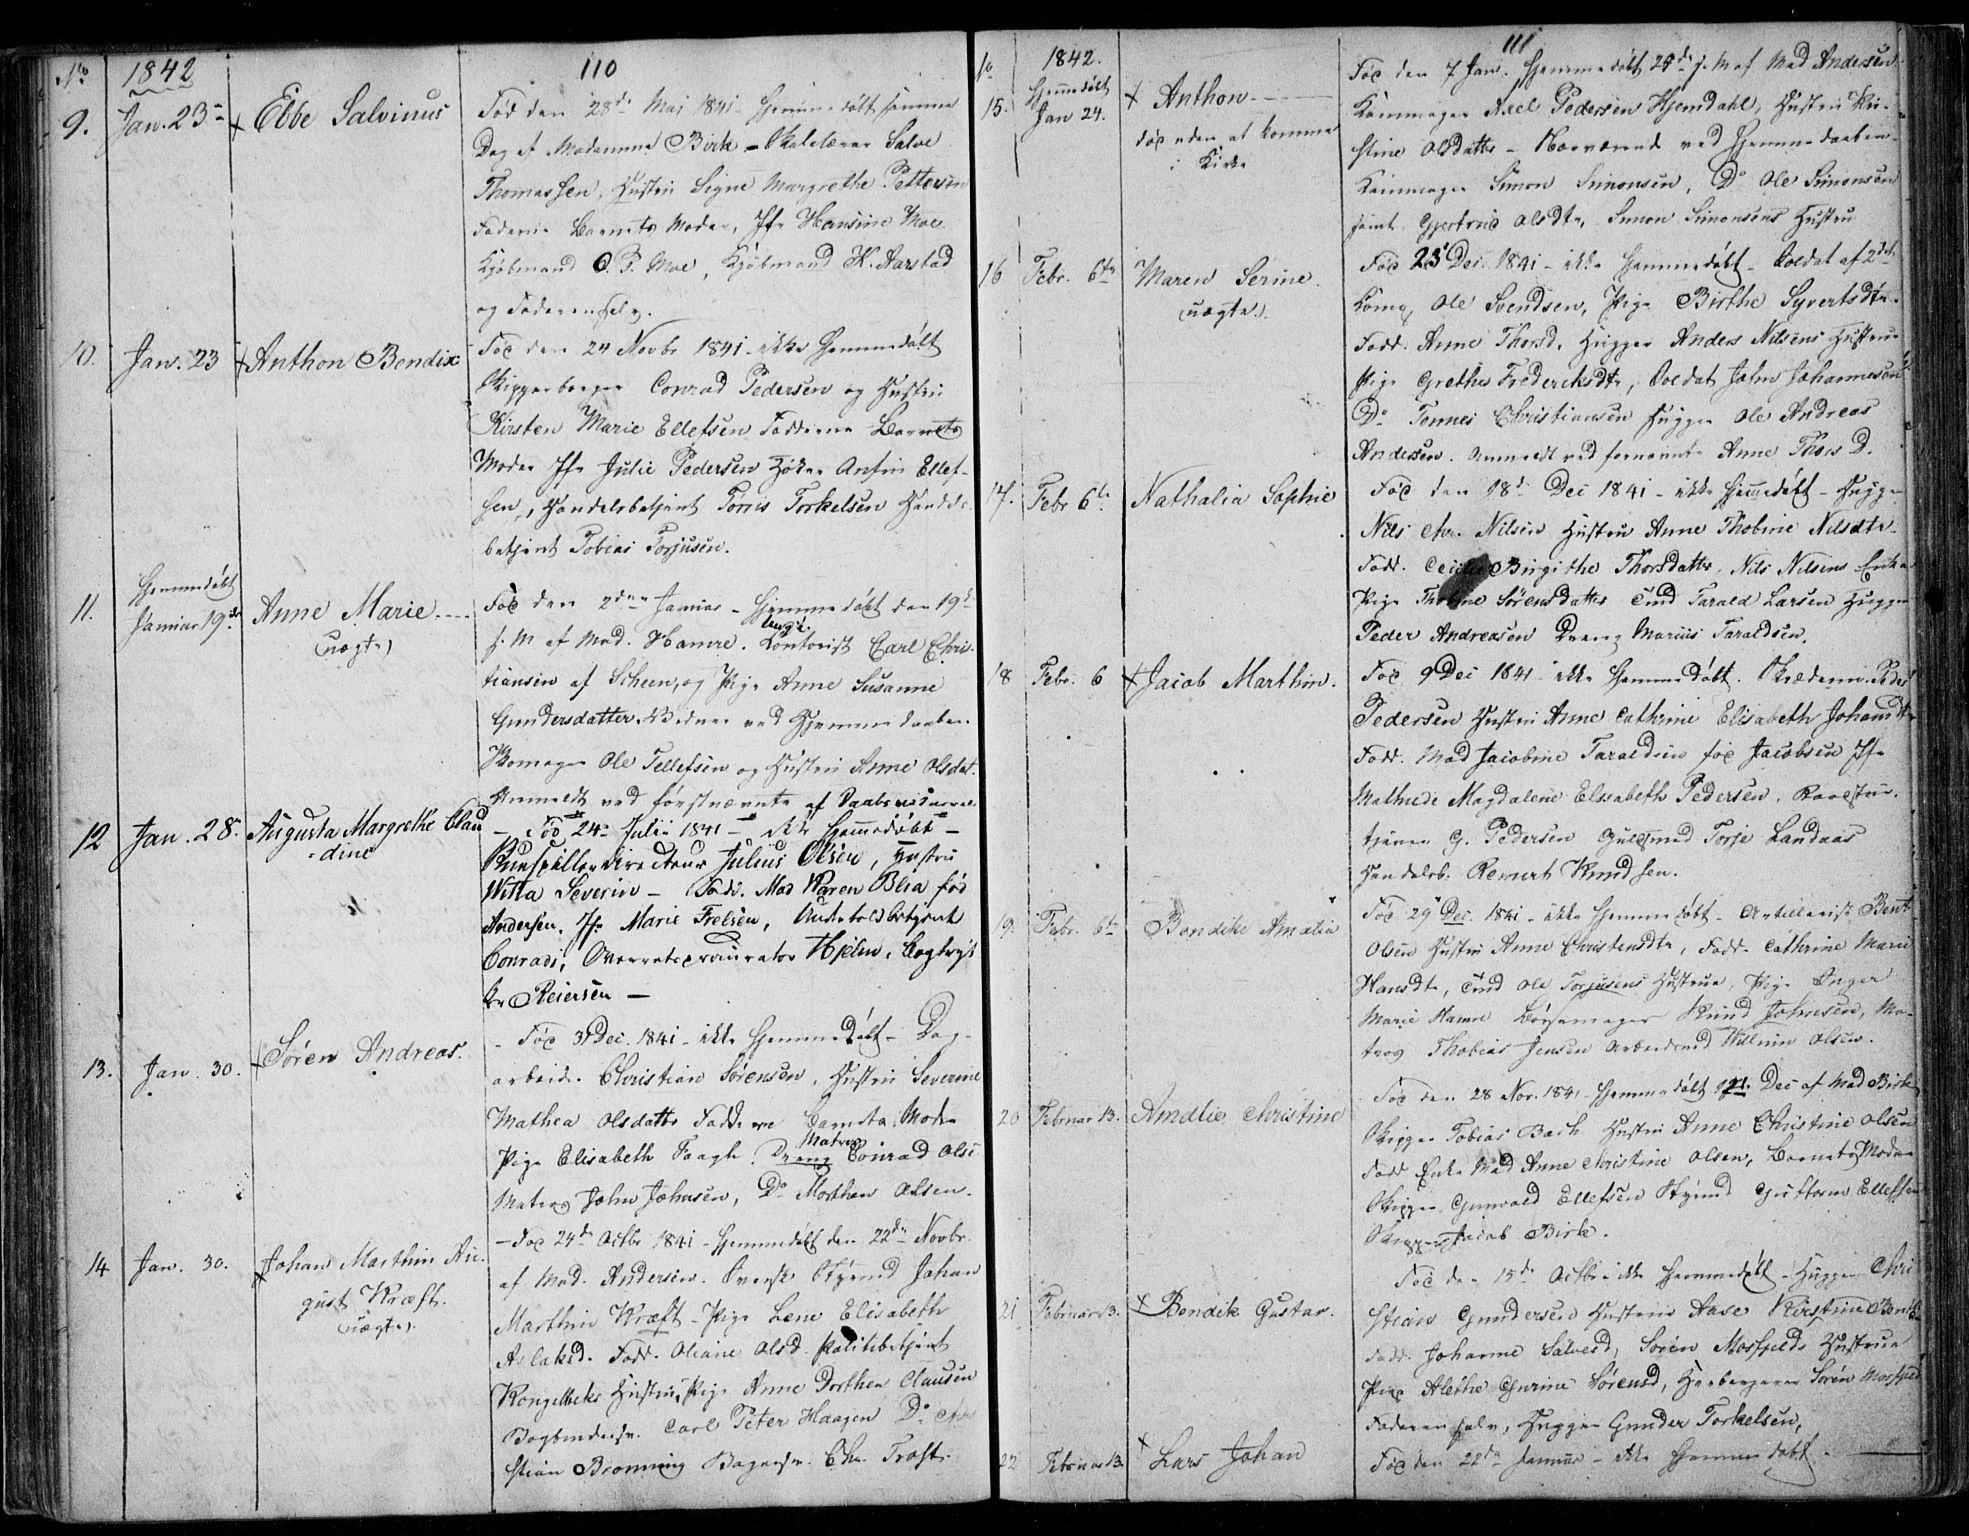 110
No 1842
9. Jan. 23 + Ebbe Salvinus
Fød den 28de Mai 1841 - hjemmedøbt samme
Dag af Madamme Birk - Skolelærer Salve
Thomassen, Hustru Signe Margrethe Pettersen
Fadderne Barnets Moder, Jfr Hansine Moe
Kjøbmand O. P. Moe, Kjøbmand K. Aarstad
og Faderen selv.
10. Jan. 23 + Anthon Bendix
Fød den 24 Novbr 1841 - ikke hjemmedøbt
Skipperborger Conrad Pedersen og Hustru
Kirsten Marie Ellefsen Fadderne Barnets
Moder Jfr Julie Pedersen Høker Anfin Ellef-
sen, Handelsbetjent Tørres Torkelsen Handels-
betjent Tobias Torjusen.
11. Hjemmedøbt
Januar 19de Anne Marie
(uægte)
Fød den 2den Januar - hjemmedøbt den 19de
s. M. af Mad. Hamre. Ungk. Kontorist Carl Chris-
tiansen af Scheen, og Pige Anne Susanne
Gundersdatter. Vidner ved Hjemmedaaben
Skomager Ole Tellefsen og Hustru Anne Olsdat.
Anmeldt ved førstnævnte af Daabsvidnerne
12 Jan. 28. Augusta Margrethe Clau
dine
- Fød 24 Julii 1841 - ikke hjemmedøbt -
Skuespillerdirecteur Julius Olsen, Hustru
Witta Severin - Fadd. Mad Karen Blia fød
Andersen, Jfr Marie Frelsen,
Conradi, Overretsprocurator Hjelm, Bogtryk
ker Reiersen -
13. Jan. 30. + Søren Andreas.
- Fød 31 Dec. 1841 - ikke hjemmedøbt - Dag-
arbeider Christian Sørensen, Hustru Severine
Mathea Olsdatter Fadderne Barnets Moder
Pige Elisabeth Faagh. Dreng Matros Conrad Olsen
Matros John Johnsen, Do Morthen Olsen.
14 Jan. 30. + Johan Marthin Au-
gust Kræft.
(uægte).
- Fød 24de Octbr 1841 - hjemmedøbt den 22de Novbr.
af Mad. Andersen. Svensk Styrmd Johan
Marthin Kræft - Pige Lene Elisabeth
Aslaksd. Fadd. Oliane Olsd. Politibetjent
Kongelbeks Hustru, Pige Anne Dorthea Clausen
Bogbindersv. Carl Peter Haagen Do Chr
stian Bronning Bagersv. Chr. Trost.
111
No 1842.
15. Hjemmedøbt
Jan 24. + Anthon
død uden at komme
i Kirke
Fød den 7 Jan. hjemmedøbt 24de s. M af Mad Andersen
Axel Pedersen Hjemdahl, Hustru Kir-
stine Olsdatter - Nærværende ved Hjemmedaaben
Simon Simonsen, Do Ole Simonsen
samt Gjertrud Olsdtr, Simon Simonsens Hustru
16 Febr. 6te Maren Serine.
(uægte).
Fød 23 Dec. 1841 - ikke hjemmedøbt - Soldat af 2det
Komp. Ole Svendsen, Pige Birthe Syvertsdtr.
Fadd. Anne Thorsd. Hugger Anders Nilsens Hustru
Pige Grethe Frederiksdtr, Soldat John Johannesen
Do Tønnes Christiansen Hugger Ole Andreas
Andersen. Anmeldt ved fornævnte Anne Thors D.
17. Febr 6te Nathalia Sophie
Fød den 18de Dec 1841 - ikke hjemmedøbt - Hugger
Nils Chr. Nilsen Hustru Anne Thobine Nilsdtr.
Fadd. Cecilie Birgithe Thorsdatter, Nils Nilsens Enke
Pige Thobine Sørensdatter Tarald Larsen Hugger
Peder Andreasen Dreng Marius Taraldsen.
18 Febr. 6 + Jacob Marthin.
Fød 9 Dec 1841 - ikke hjemmedøbt. Skrædderm. Peder
Pedersen Hustru Anne Cathrine Elisabeth Johansdtr
Fadd. Mad Jacobine Taraldsen fød Jacobsen Jfr
Mathilde Magdalene Elisabeth Pedersen,
tjener G. Pedersen Guldsmed Torje Landaas
Handelsb. Reinert Knudsen.
19. Febr. 6te Bendikte Amalia
Fød 29 Dec. 1841 - ikke hjemmedøbt - Artillerist Bent
Olsen Hustru Anne Christensdtr, Fadd. Cathrine Marie
Hansdtr, Ole Torjusens Hustrue, Pige Inger
Marie Hamre Børsemager Knud Johnsen, Ma-
tros Thobias Jensen Arbeidsmd Willum Olsen.
20 Februar 13. Amalie Christine
Fød den 28 Nov. 1841 - hjemmedøbt 12. Dec af Mad Birk
Skipper Tobias Bach Hustru Anne Christine Olsen
Fadd Enke Mad Anne Christine Olsen, Barnets Moder
Skipper Gunvald Ellefsen Styrmd Guttorm Ellefsen
Skipper Jacob Birk.
21 Februar 13. + Bendik Gustav.
Fød den 15de Octbr ikke hjemmedøbt - Hugger Chri
stian Gundersen Hustrue Aase Kirstine Bents
Fadd. Johanne Salvesd, Søren Mosfjelds Hustrue
Pige Alethe Gurine Sørensd, Herbergerer Søren Mosfjeld
Faderen selv, Hugger Gunder Torkelsen,
22 Februar 13. + Lars Johan
Fød den 22de Januar - ikke hjemmedøbt.